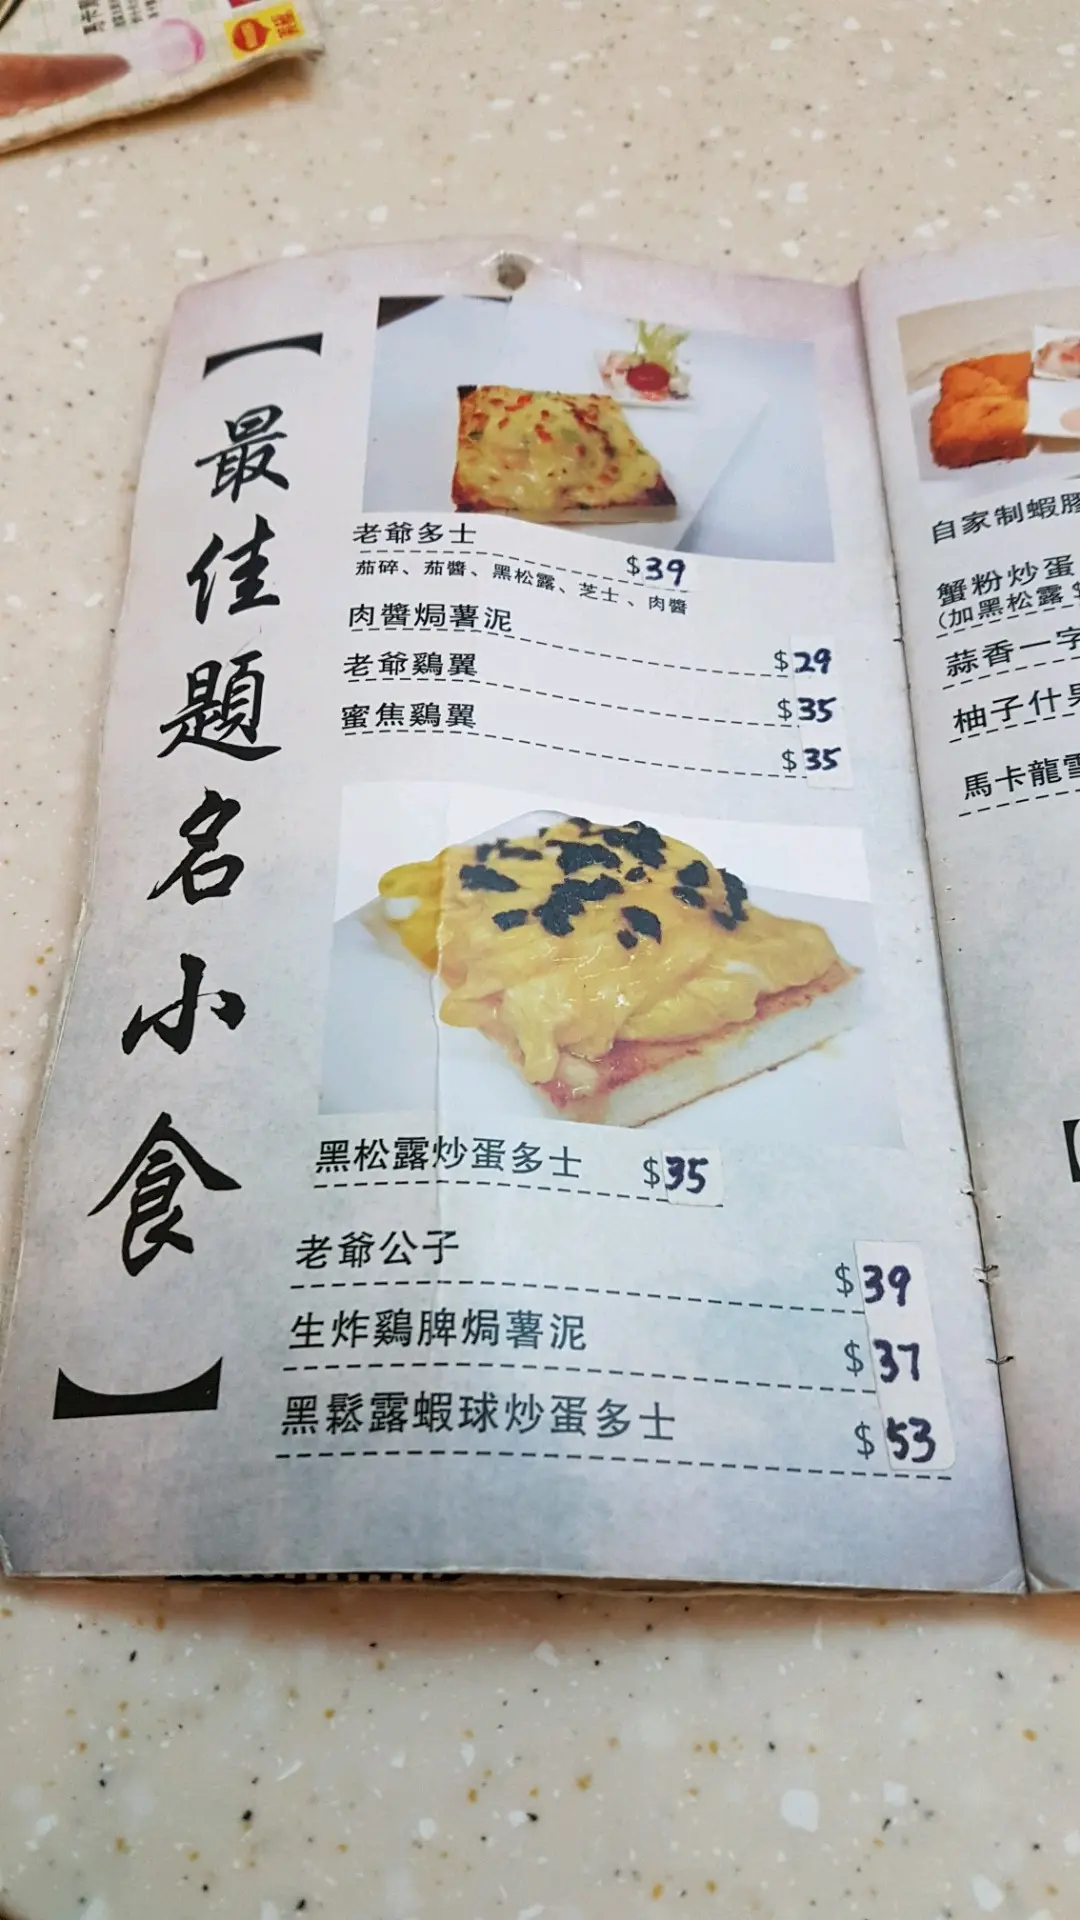 【最佳題名小食】
老爺多士 $39
茄碎、茄醬、黑松露、芝士、肉醬
肉醬焗薯泥 $29
老爺鷄翼 $35
蜜焦鷄翼 $35
黑松露炒蛋多士 $35
老爺公子 $39
生炸鷄脾焗薯泥 $37
黑鬆露蝦球炒蛋多士 $53
自家制蝦膠
蟹粉炒蛋
(加黑松露 $
蒜香一字
柚子什果
馬卡龍雪